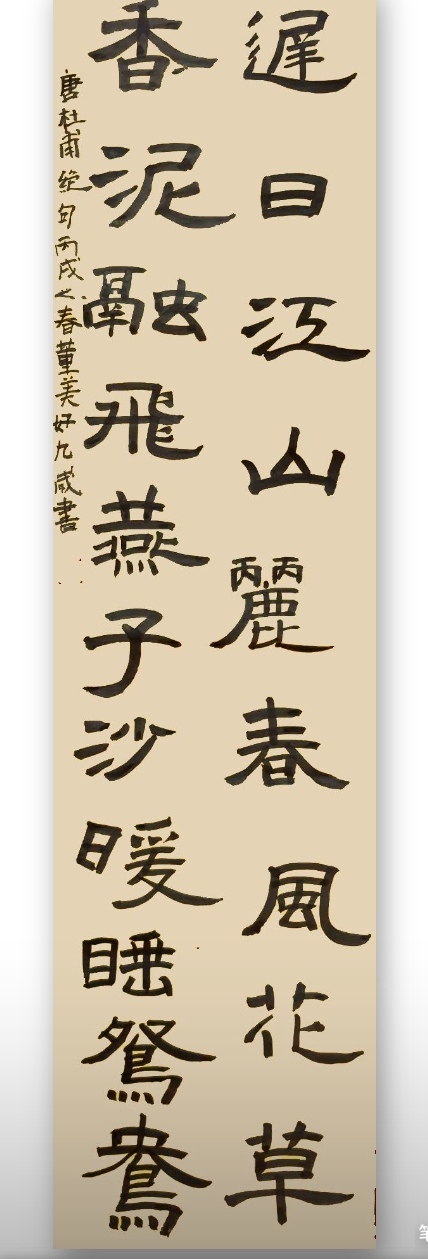 遲日江山麗春風花草
香泥融飛燕子沙暖睡鴛鴦
唐杜甫絕句丙戌之春董美好九歲書